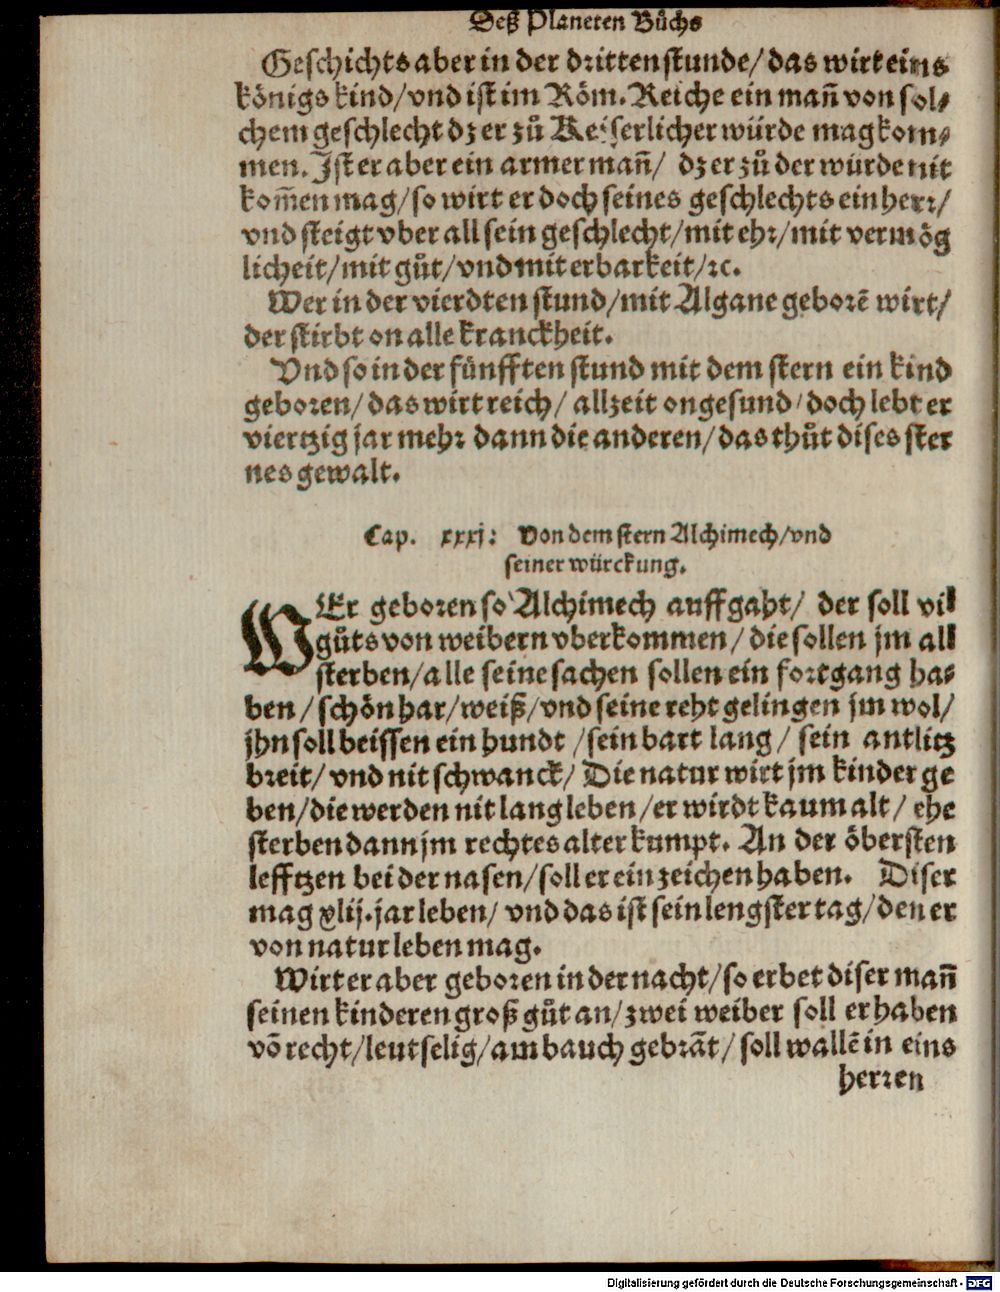 Deß Planeten Bůchs
Geschichts aber in der dritten stunde/ das wirt eins
königs kind/ vnd ist im Röm. Reiche ein mañ von sol⸗
chem geschlecht dz er zů Keiserlicher würde mag kom⸗
men. Ist er aber ein armer mañ/ dz er zů der würde nit
kom̃en mag/ so wirt er doch seines geschlechts ein herꝛ/
vnd steigt vber all sein geschlecht/ mit ehꝛ/ mit vermög
licheit/ mit gůt/ vnd mit erbarkeit/ ꝛc.
Wer in der vierdten stund/ mit Algane geborẽ wirt/
der stirbt on alle kranckheit.
Vnd so in der fünfften stund mit dem stern ein kind
geboꝛen/ das wirt reich/ allzeit ongesund/ doch lebt er
viertzig jar mehꝛ dann die anderen/ das thůt dises ster
nes gewalt.
Cap. xxxj: Von dem stern Alchimech/ vnd
seiner würckung.
WEr geboꝛen so Alchimech auffgaht/ der soll vil
gůts von weibern vberkommen/ die sollen jm all
sterben/ alle seine sachen sollen ein foꝛtgang ha⸗
ben/ schön har/ weiß/ vnd seine reht gelingen jm wol/
jhn soll beissen ein hundt/ sein bart lang/ sein antlitz
bꝛeit/ vnd nit schwanck/ Die natur wirt jm kinder ge
ben/ die werden nit lang leben/ er wirdt kaum alt/ ehe
sterben dann jm rechtes alter kumpt. An der öbersten
lefftzen bei der nasen/ soll er ein zeichen haben. Diser
mag xlij. jar leben/ vnd das ist sein lengster tag/ den er
von natur leben mag.
Wirt er aber geboꝛen in der nacht/ so erbet diser mañ
seinen kinderen groß gůt an/ zwei weiber soll er haben
võ recht/ leutselig/ am bauch gebꝛãt/ soll wallẽ in eins
herꝛen
Digitalisierung gefördert durch die Deutsche Forschungsgemeinschaft - DFG